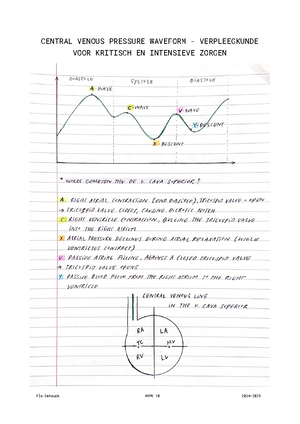 CENTRAL VENOUS PRESSURE WAVEFORM - VERPLEEGKUNDE
VOOR KRITISCH EN INTENSIEVE ZORGEN
DIASTOLE SYSTOLE DIASTOLE
A WAVE
C WAVE
V WAVE
Y DESCENT
X DESCENT
V. CAVA SUPERIOR!
A RIGHT ATRIAL CONTRACTION (END DIASTOLE), TRICUSPID VALVE = OPEN
→ TRICUSPID VALVE CLOSES, CAUSING
C RIGHT VENTRICLE CONTRACTION, THE TRICUSPID VALVE
INTO THE RIGHT ATRIUM
X ATRIAL PRESSURE DECLINES DURING ATRIAL RELAXATION
VENTRICLES CONTRACT)
V PASSIVE ATRIAL FILLING, AGAINST A CLOSED TRICUSPID VALVE
→ TRICUSPID VALVE OPENS
Y PASSIVE BLOOD FLOW FROM THE RIGHT ATRIUM THE RIGHT
VENTRICLE
CENTRAL VENOUS LINE
IN THE V CAVA SUPERIOR
RA LA
TC MV
RV LV
2024-2025